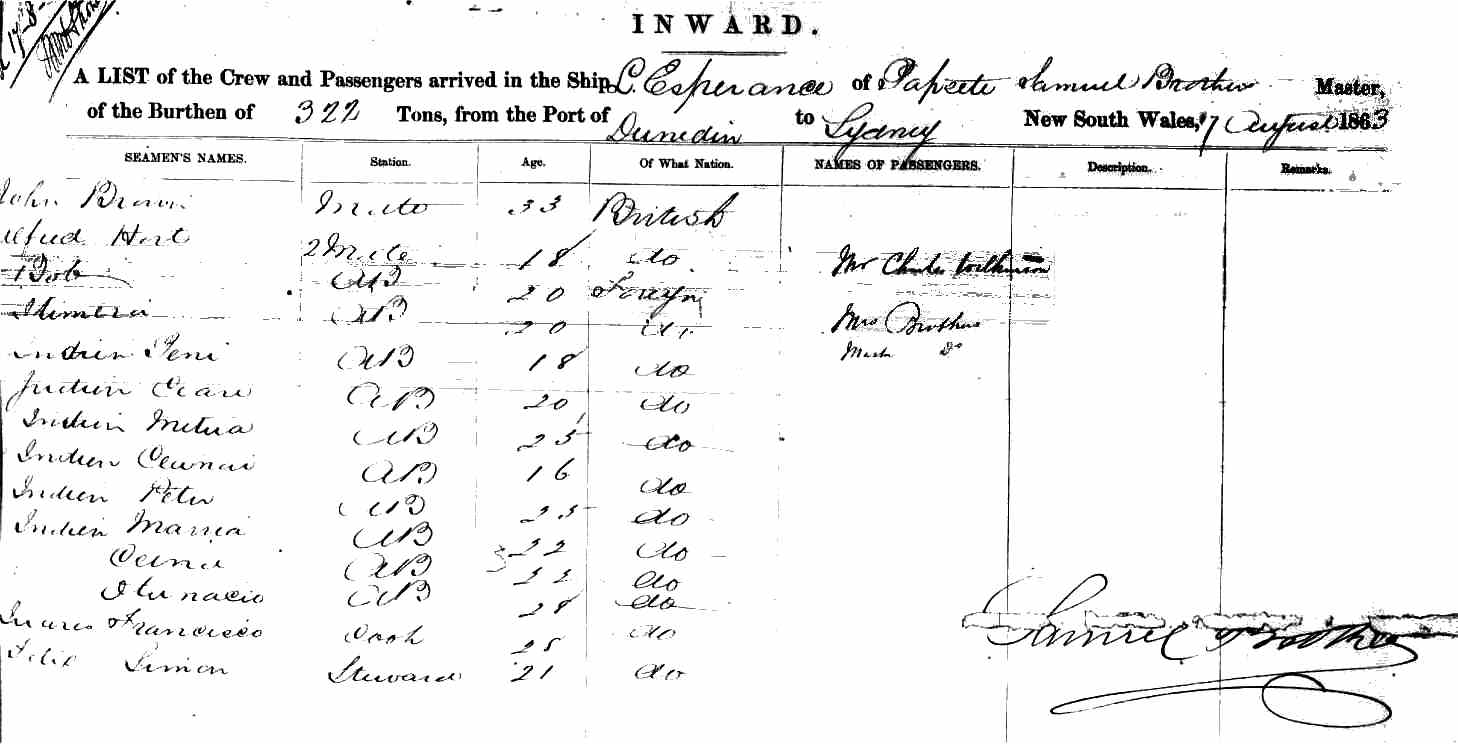 INWARD.
A LIST of the Crew and Passengers arrived in the Ship L'Esperance of Papeete Samuel Brothers Master,
of the Burthen of 322 Tons, from the Port of Dunedin to Sydney New South Wales, 17 August 1863
SEAMEN'S NAMES. Station. Age. Of What Nation. NAMES OF PASSENGERS. Description. Remarks.
John Brown Mate 33 British
Alfred Hort 2 Mate 18 do Mr Charles Wilkinson
Bob AB 20 Foreign
AB 20 do Mrs Brothers
Indien Teni AB 18 do Do
Indien AB 20 do
Indien Metua AB 25 do
Indien AB 16 do
Indien Peter AB 25 do
Indien AB 22 do
AB 32 do
AB 28 do
Francisco Cook 25 do
Simon Steward 21 do
Samuel Brothers